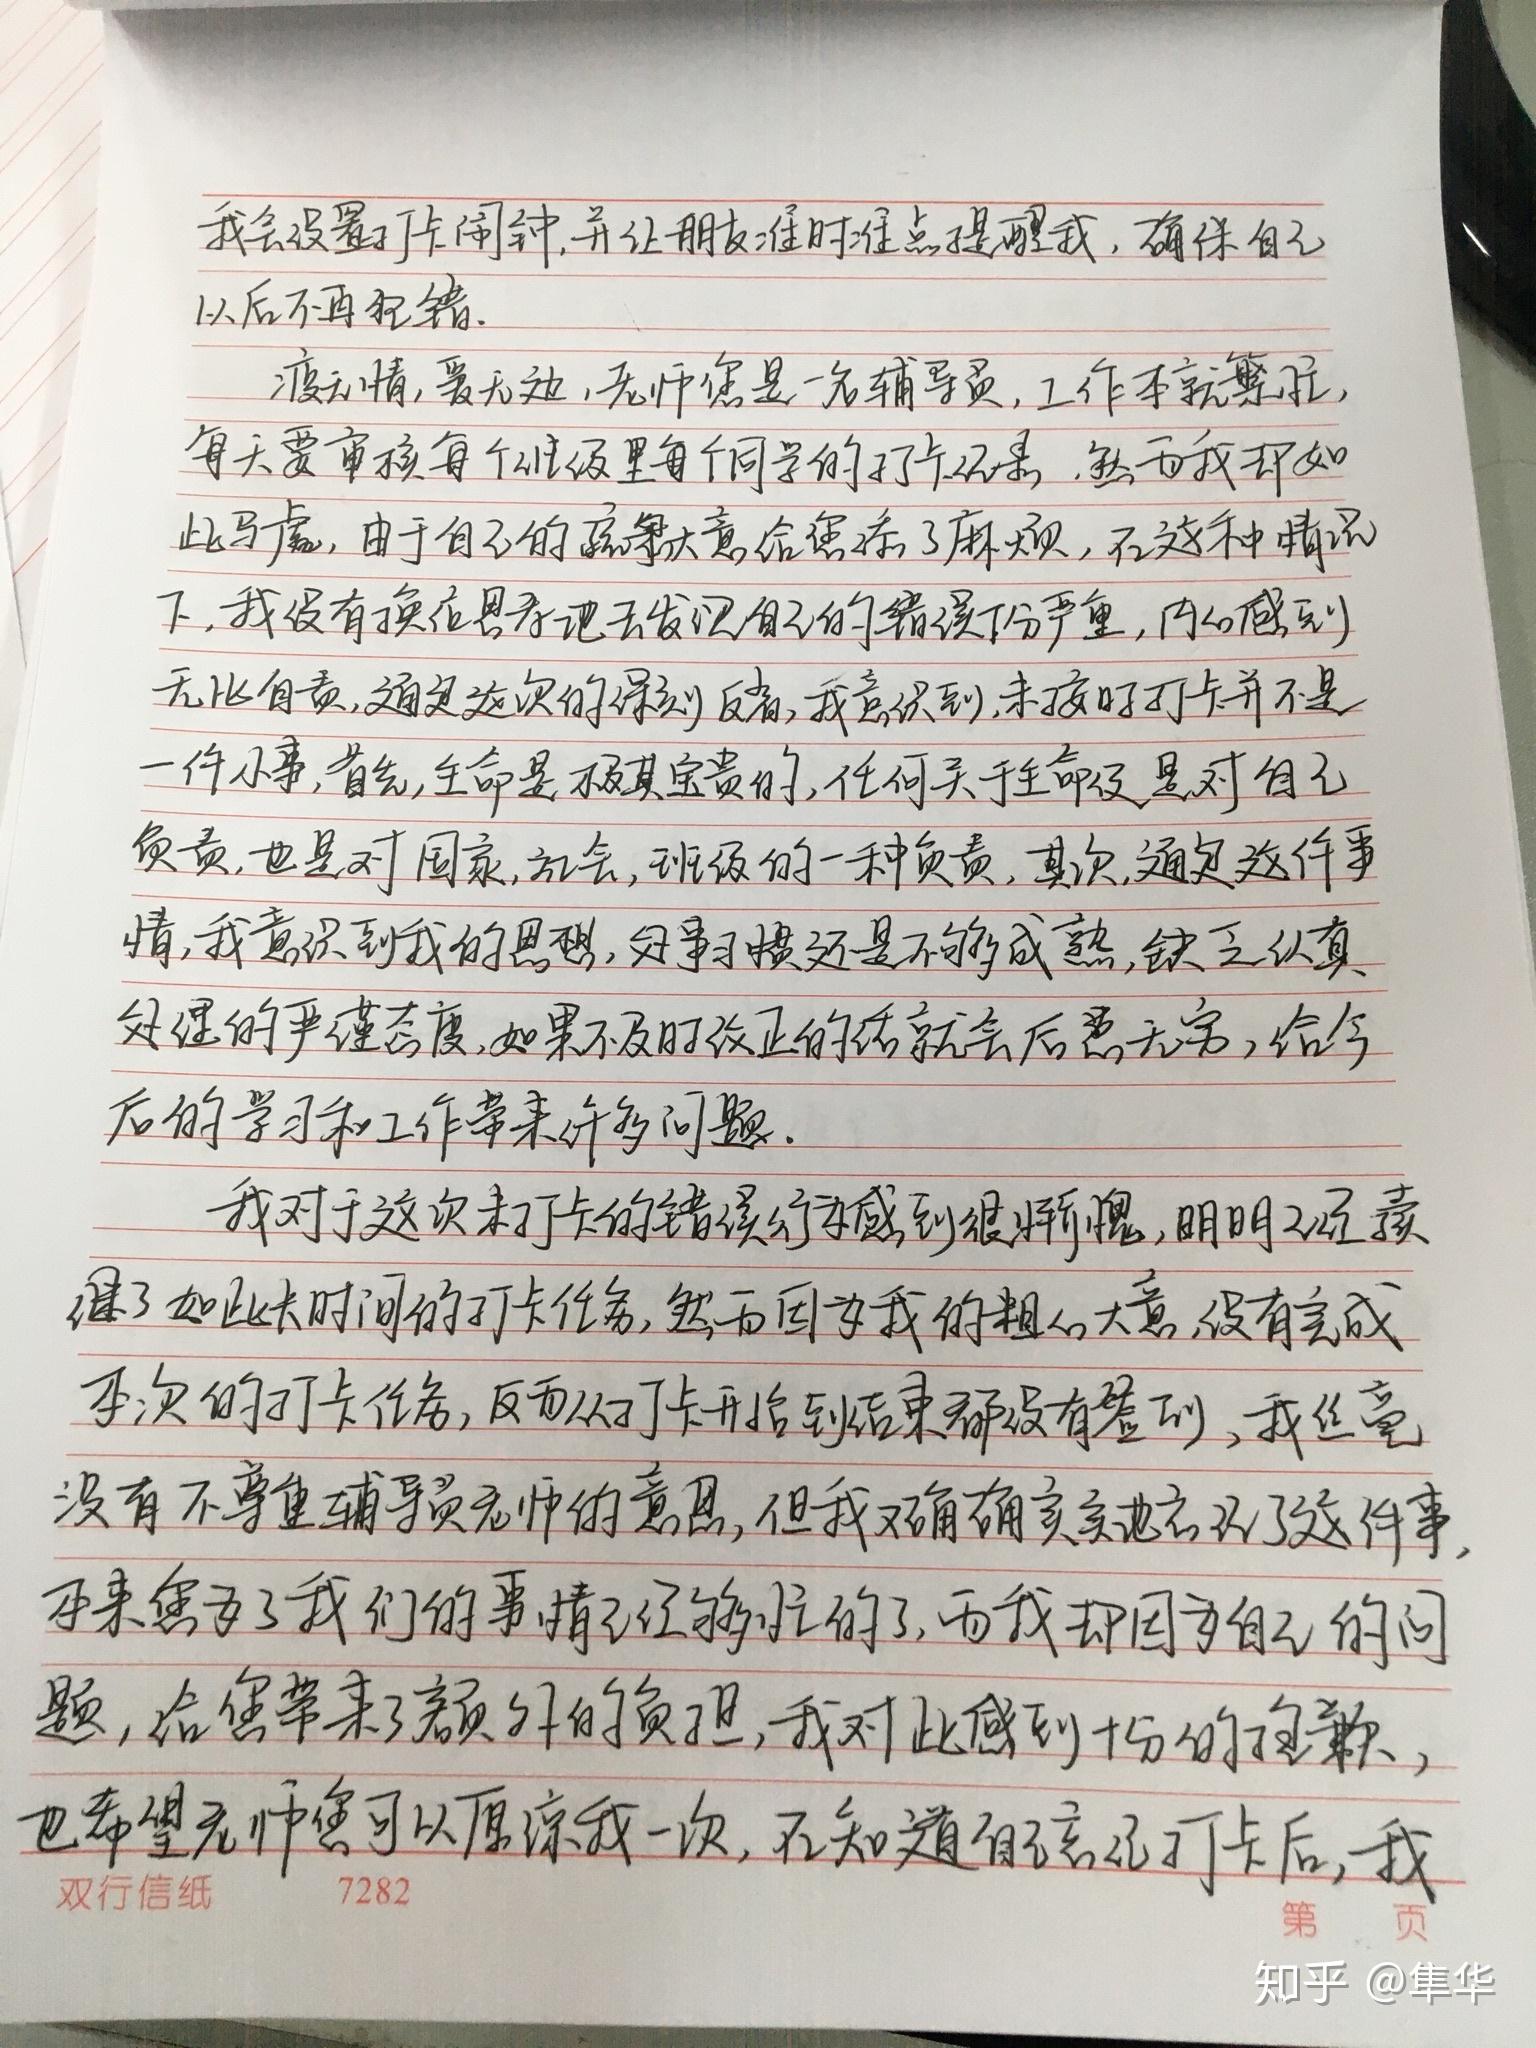 我会设置打卡闹钟,并让朋友准时准点提醒我,确保自己
以后不再犯错.
疫无情,爱无边,老师您是一名辅导员,工作本就繁忙,
每天要审核每个班级里每个同学的打卡记录,然而我却如
此马虎,由于自己的疏忽大意给您添了麻烦,在这种情况
下,我没有换位思考地去发现自己的错误十分严重,内心感到
无比自责,通过这次的深刻反省,我意识到,未按时打卡并不是
一件小事,首先,生命是极其宝贵的,任何关于生命便是对自己
负责,也是对国家,社会,班级的一种负责,其次,通过这件事
情,我意识到我的思想,处事习惯还是不够成熟,缺乏认真
处理的严谨态度,如果不及时改正的话就会后患无穷,给今
后的学习和工作带来许多问题.
我对于这次未打卡的错误行为感到很惭愧,明明已经续
继了如此长时间的打卡任务,然而因为我的粗心大意,没有完成
本次的打卡任务,反而从打卡开始到结束都没有签到,我丝毫
没有不尊重辅导员老师的意思,但我又确确实实地忘记了这件事,
本来您为了我们的事情已经够忙的了,而我却因为自己的问
题,给您带来了额外的负担,我对此感到十分的抱歉,
也希望老师您可以原谅我一次,在知道自己忘记打卡后,我
双行信纸 7282 第 页
知乎 @隼华